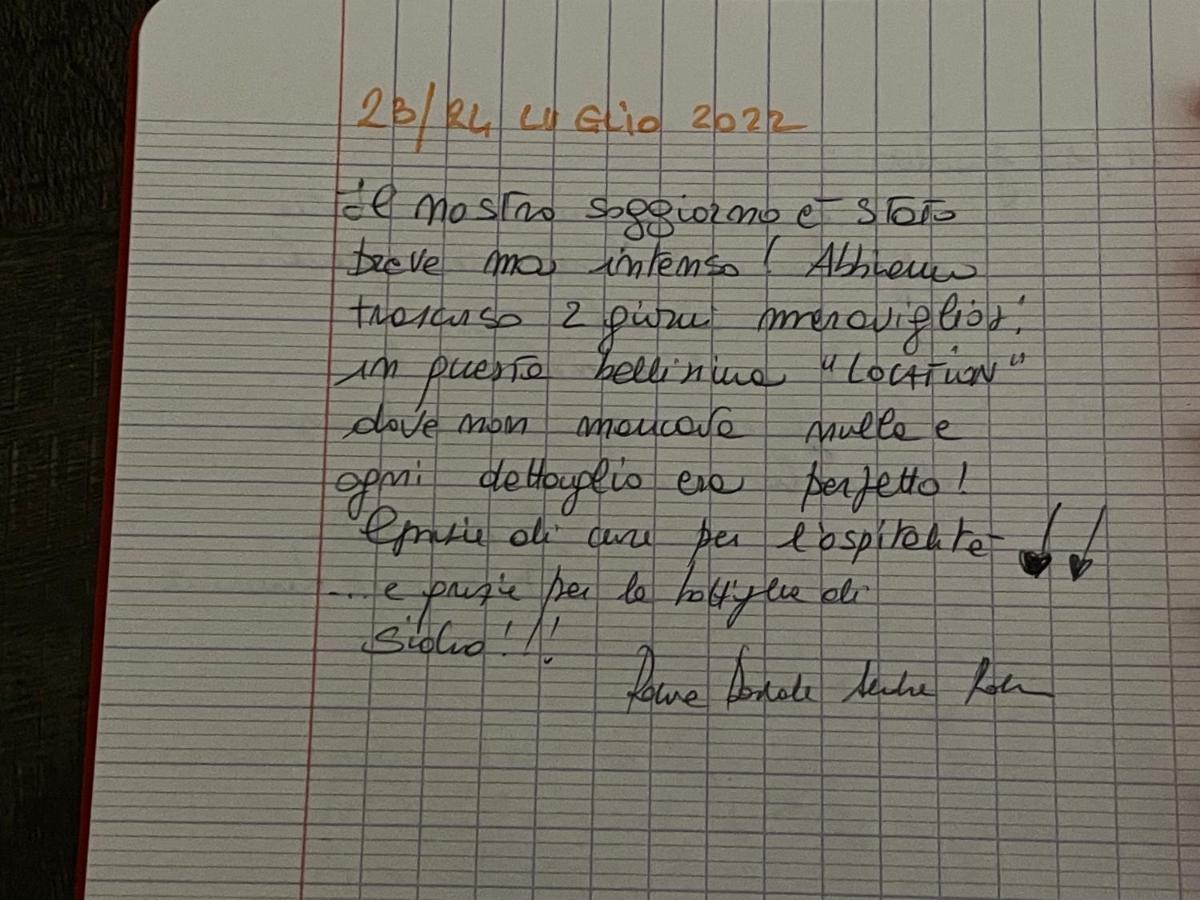 23/24 LUGLIO 2022
il nostro soggiorno è stato
breve ma intenso! Abbiamo
trascorso 2 giorni meravigliosi
in questa bellissima "LOCATION"
dove non mancava nulla e
ogni dettaglio era perfetto!
Grazie di cuore per l'ospitalità
... e grazie per la bottiglia di
sidro!!!